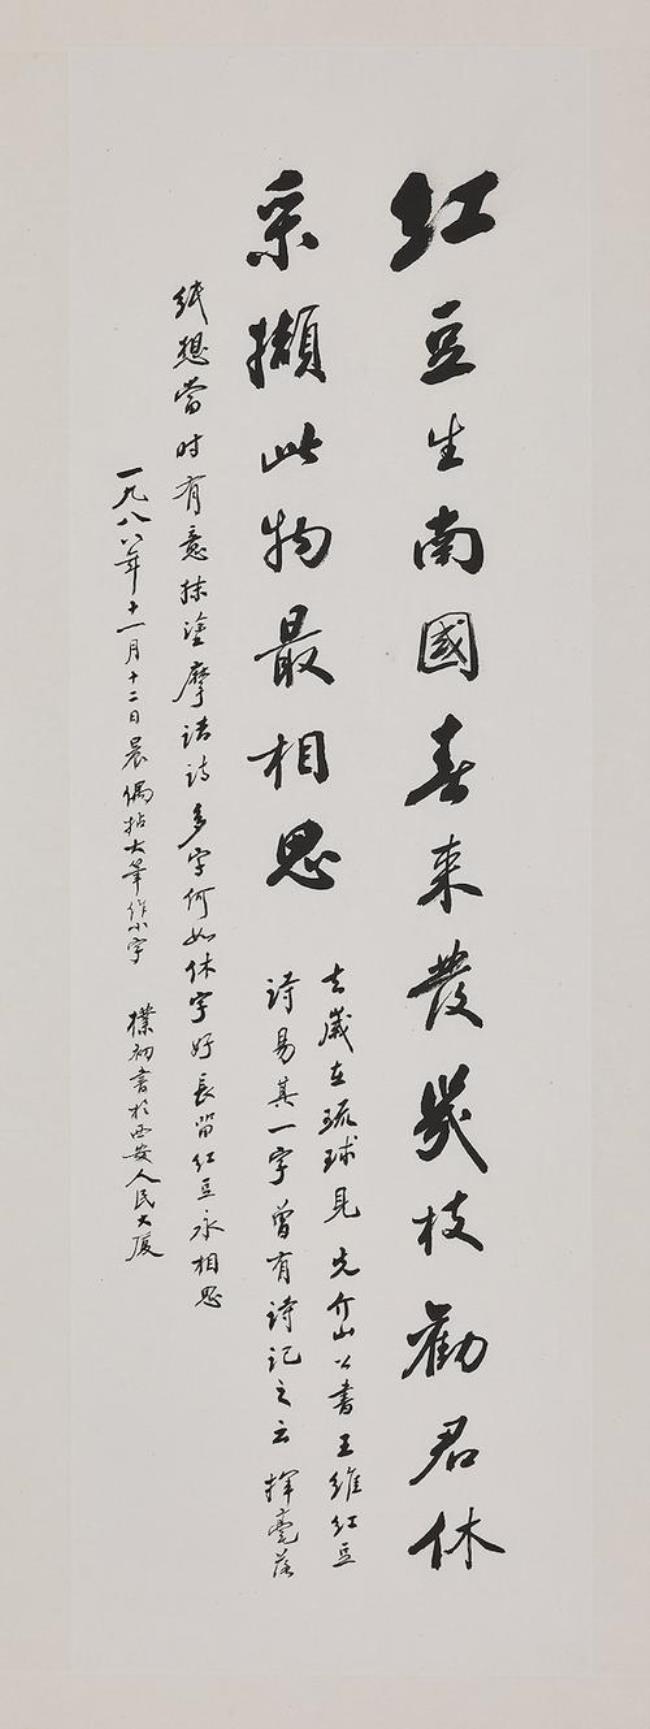 红豆生南國春来發幾枝勸君休
采擷此物最相思
去歲在琉球見先介山公書王維红豆
詩易其一字曾有詩記之云揮毫落
纸想當时有意抹塗摩诘诗多字何如休字好長留红豆永相思
一九八八年十一月十二日晨偶拈大筆作小字
樸初書於西安人民大厦